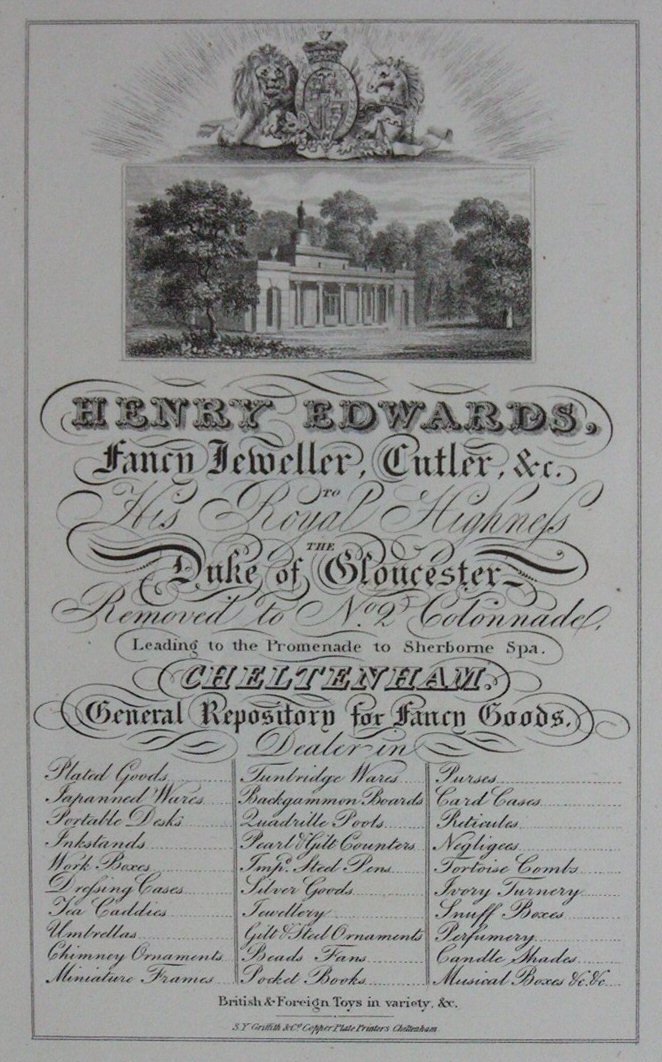 HENRY EDWARDS,
Fancy Jeweller, Cutler, &c.
TO
His Royal Highness
THE
Duke of Gloucester
Removed to No. 2 Colonnade,
Leading to the Promenade to Sherborne Spa.
CHELTENHAM.
General Repository for Fancy Goods.
Dealer in
Plated Goods
Japanned Wares
Portable Desks
Inkstands
Work Boxes
Dressing Cases
Tea Caddies
Umbrellas
Chimney Ornaments
Miniature Frames
Tunbridge Wares
Backgammon Boards
Quadrille Pools
Pearl & Gilt Counters
Impd. Steel Pens
Silver Goods
Jewellery
Gilt & Steel Ornaments
Beads Fans
Pocket Books
Purses
Card Cases
Reticules
Negligees
Tortoise Combs
Ivory Turnery
Snuff Boxes
Perfumery
Candle Shades
Musical Boxes &c. &c.
British & Foreign Toys in variety, &c.
S.Y. Griffith & Co. Copper Plate Printers Cheltenham